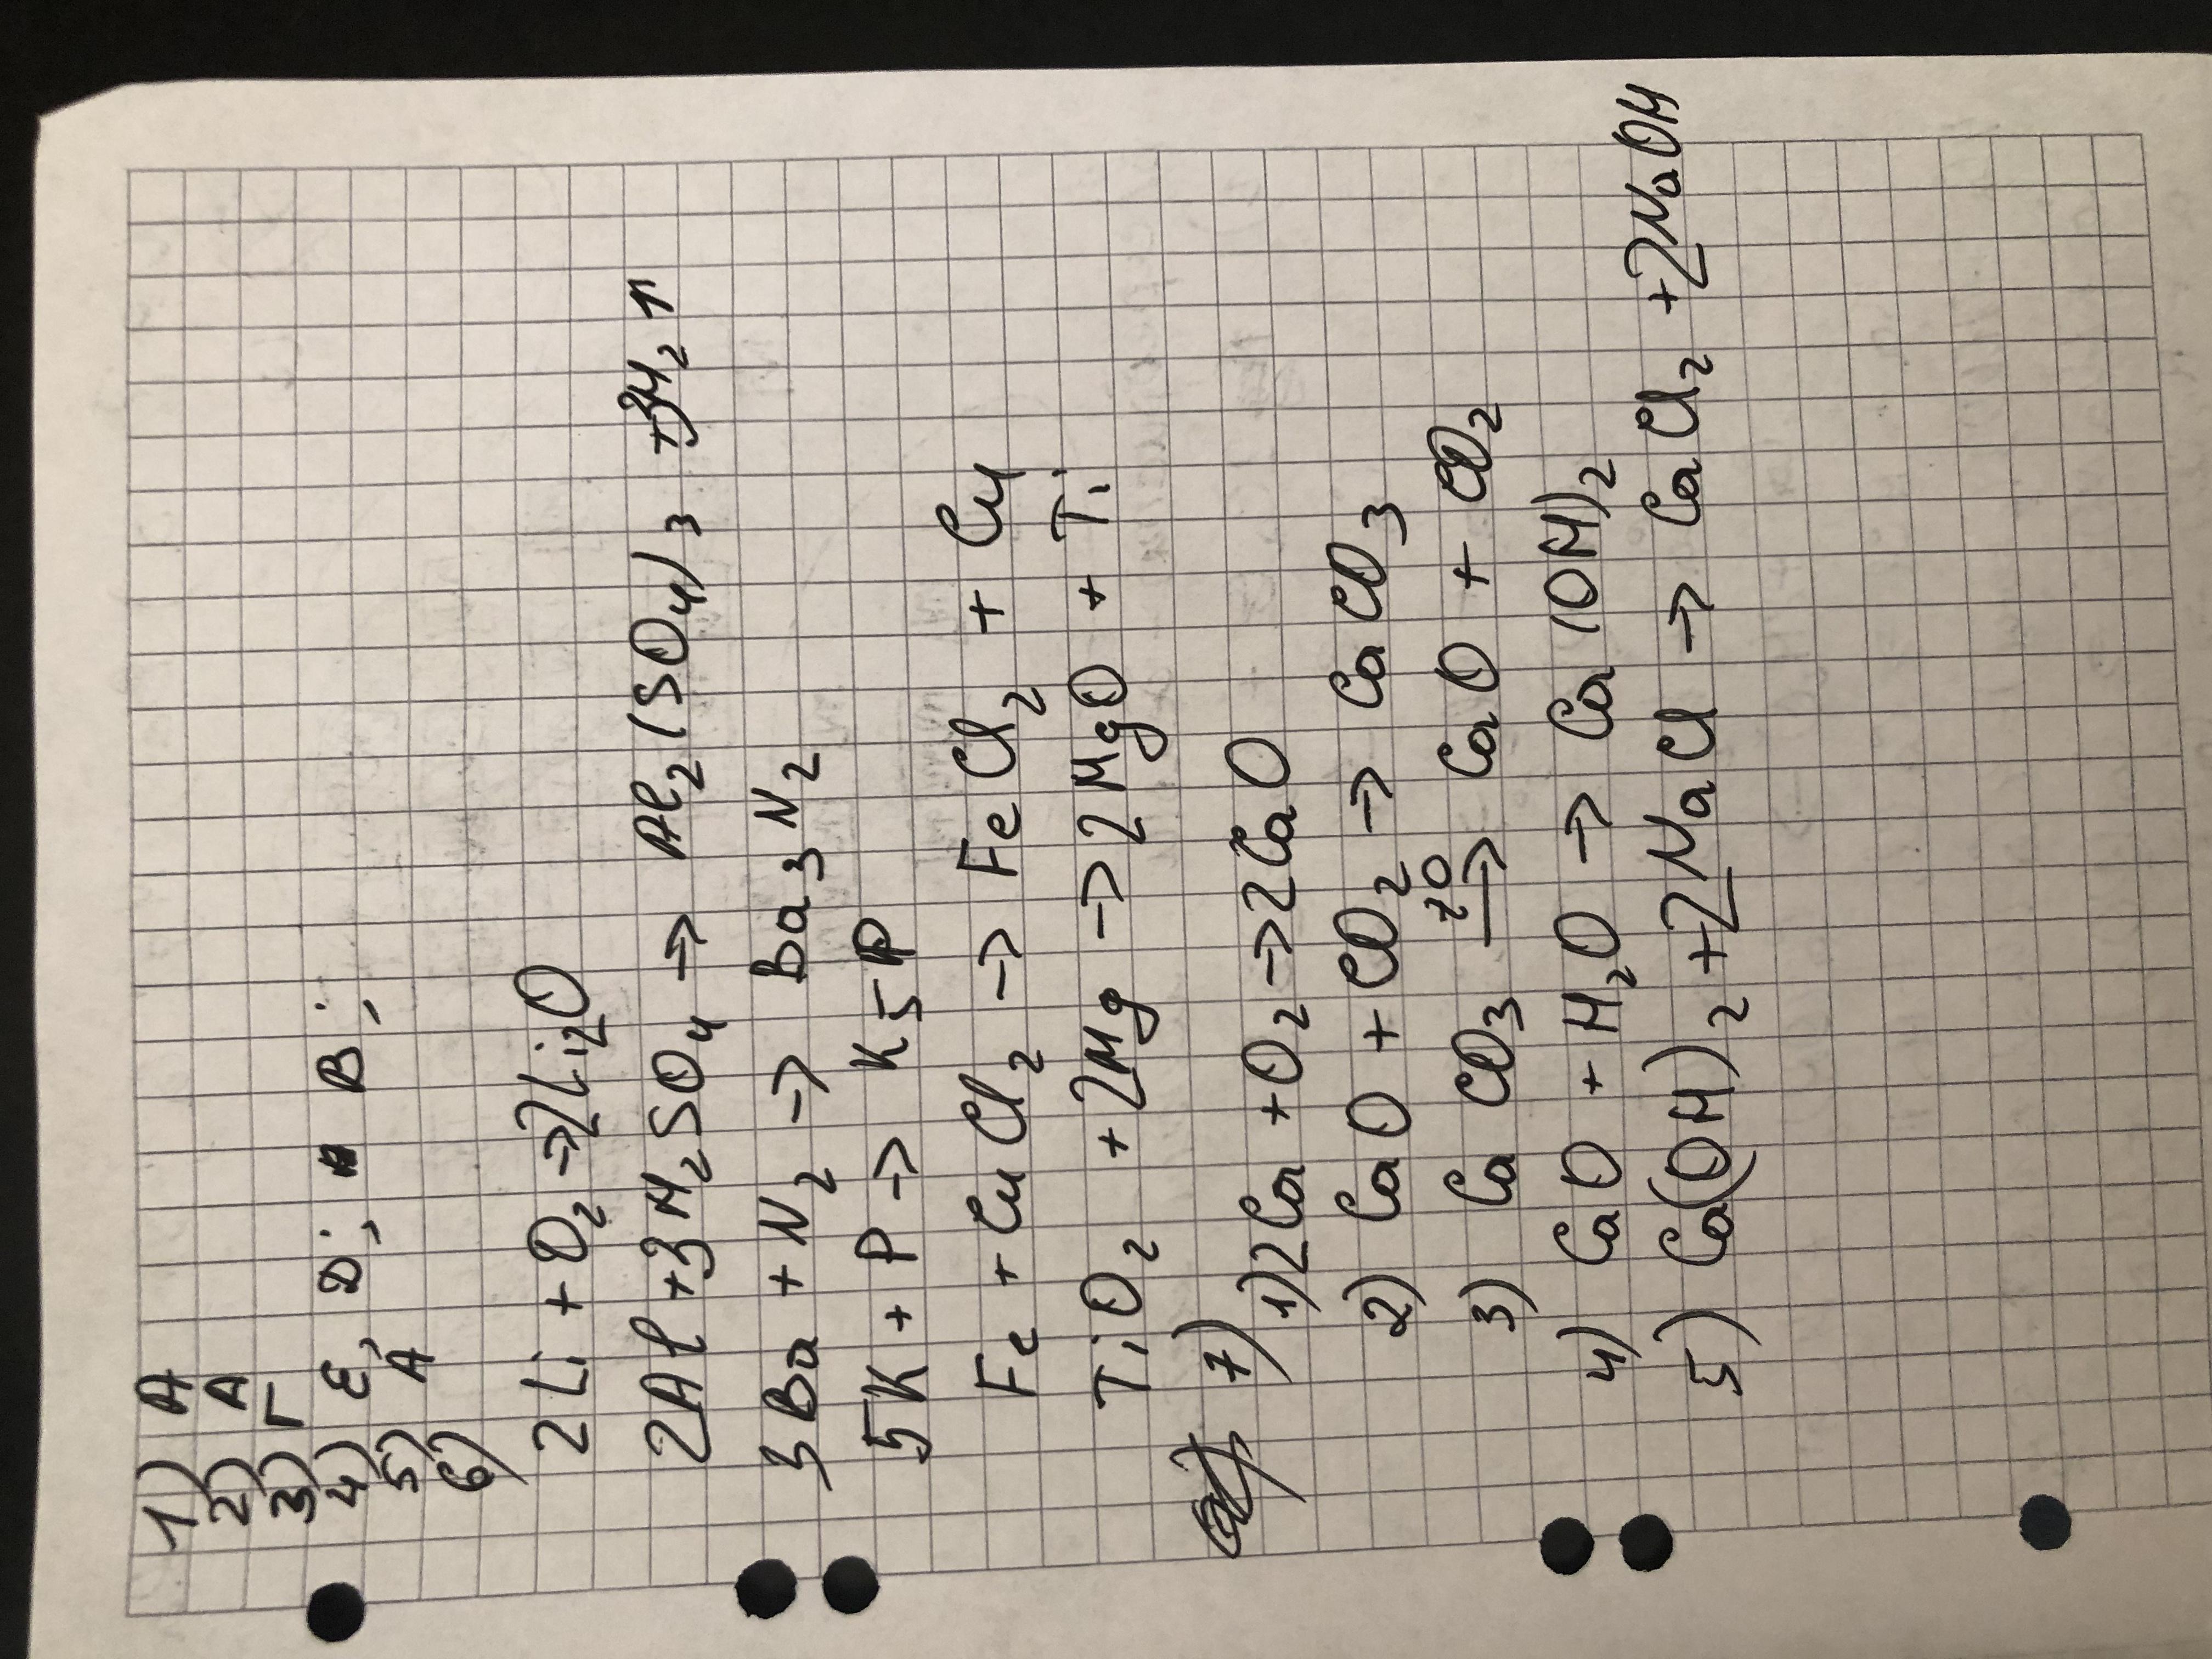 1) А
2) А
3) Г
4) Е, D; В;
5) А
6)
2 Li + O2 → 2Li2O
2Al + 3H2SO4 → Al2(SO4)3 + 3H2↑
3 Ba + N2 → Ba3N2
5K + P → K5P
Fe + CuCl2 → FeCl2 + Cu
TiO2 + 2Mg → 2MgO + Ti
7) 1) 2Ca + O2 → 2CaO
2) CaO + CO2 → CaCO3
3) CaCO3 t° → CaO + CO2
4) CaO + H2O → Ca(OH)2
5) Ca(OH)2 + 2NaCl → CaCl2 + 2NaOH